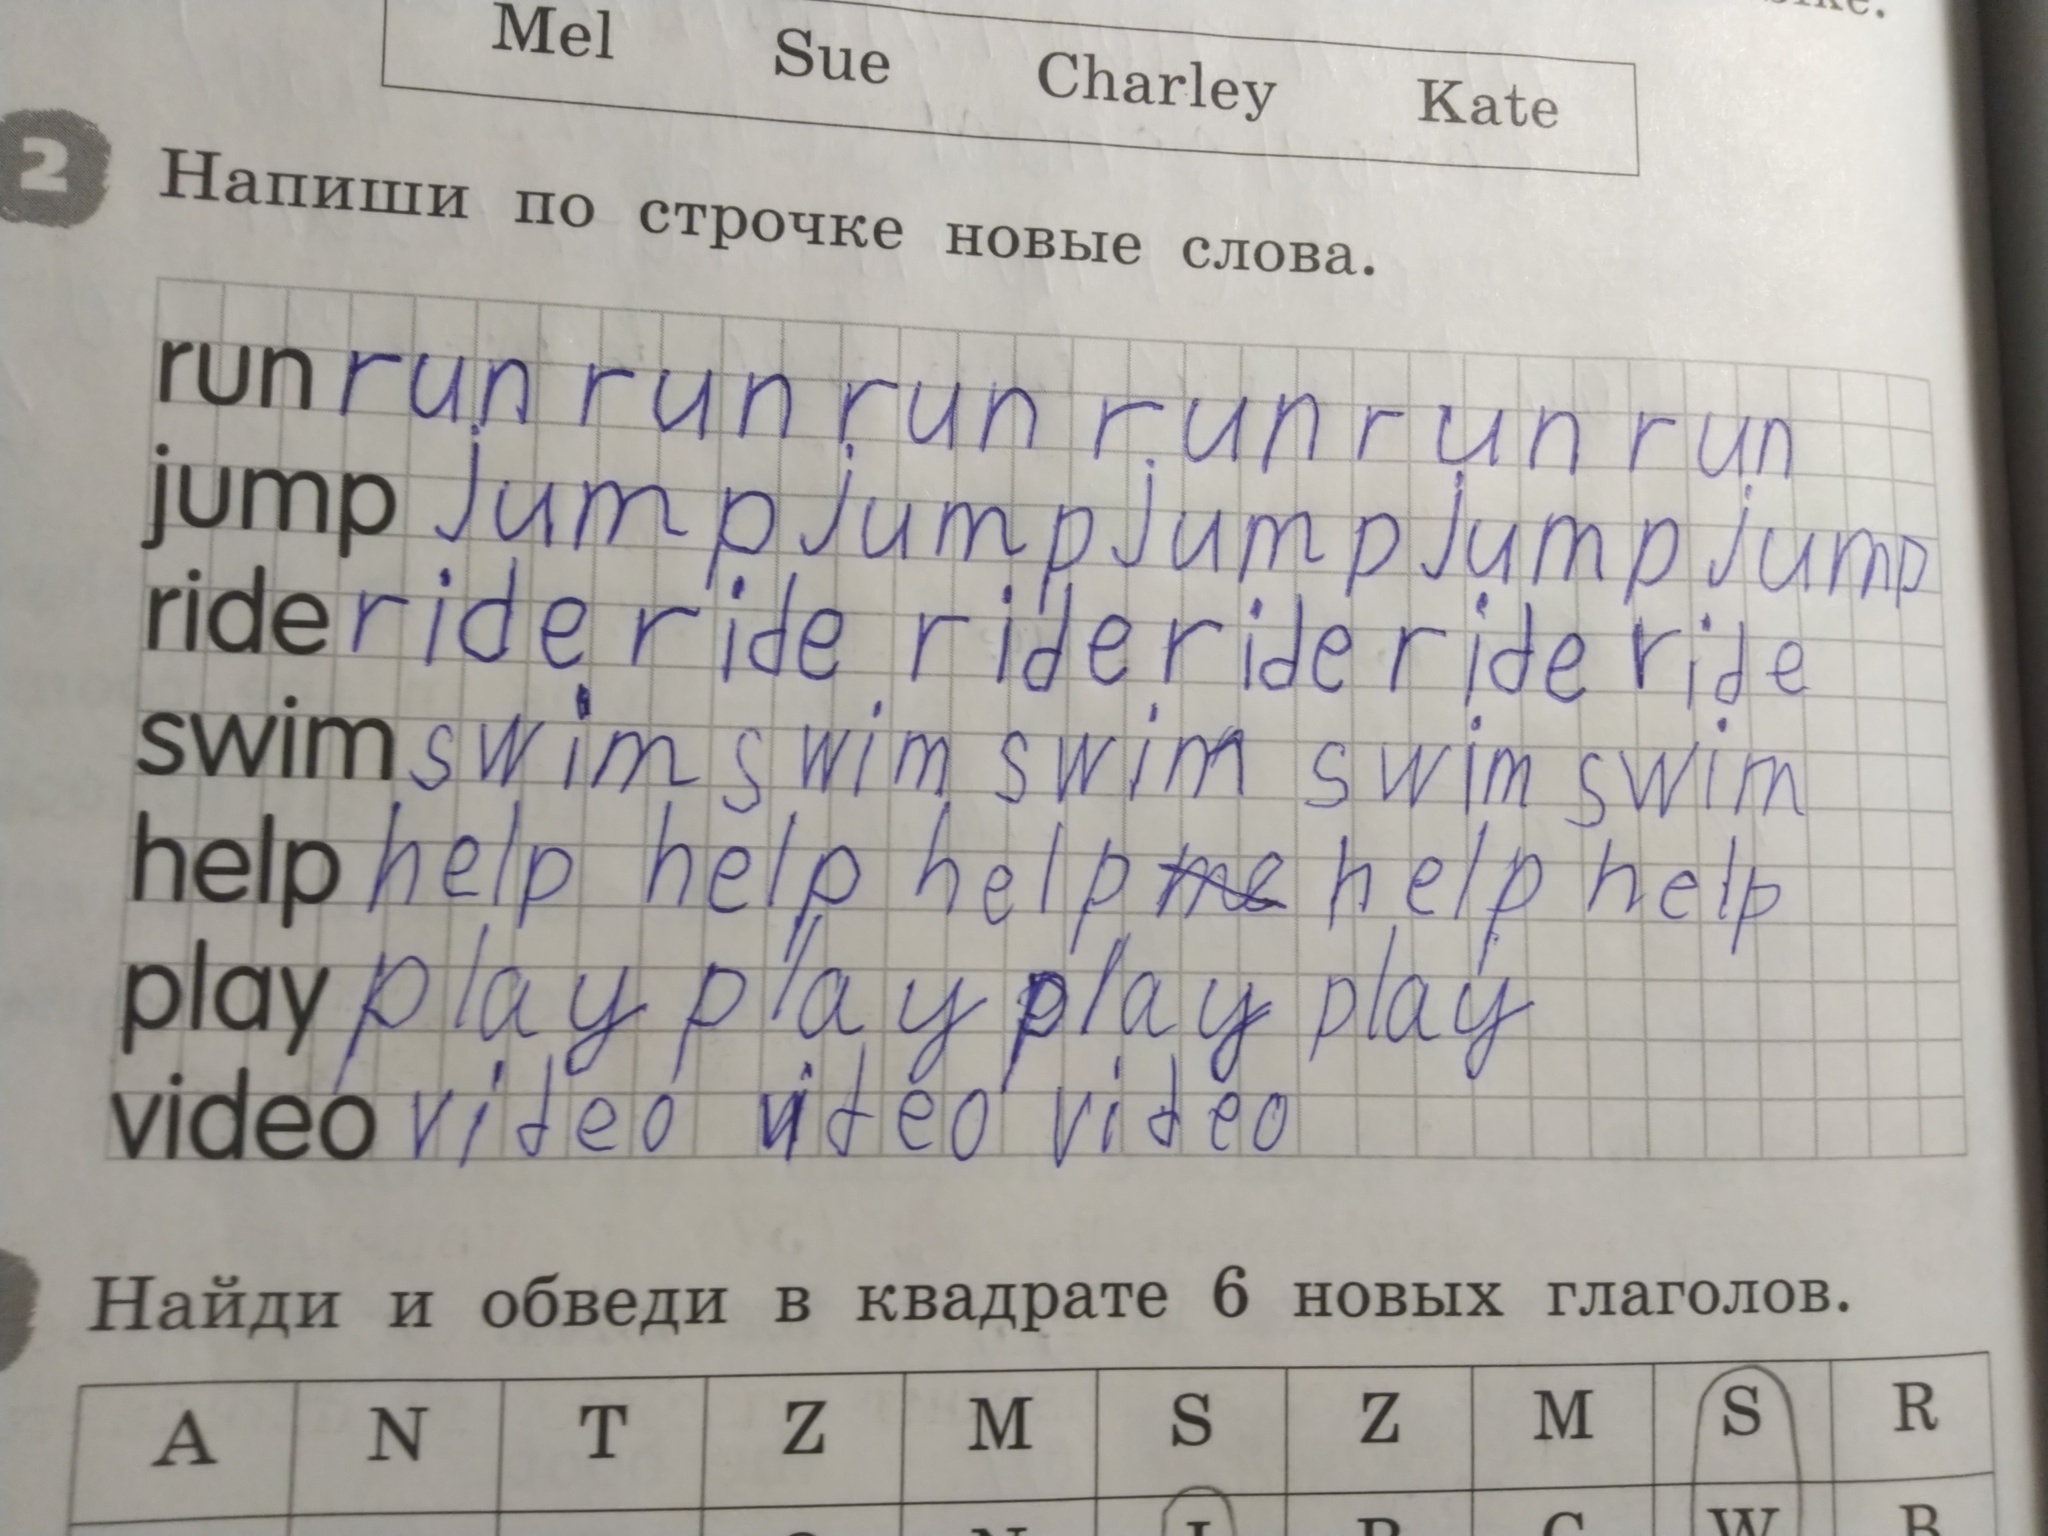 Mel Sue Charley Kate
2 Напиши по строчке новые слова.
run run run run run run run
jump jump jump jump jump jump
ride ride ride ride ride ride ride
swim swim swim swim swim swim
help help help help me help help
play play play play play
video video video video
Найди и обведи в квадрате 6 новых глаголов.
A N T Z M S Z M S R